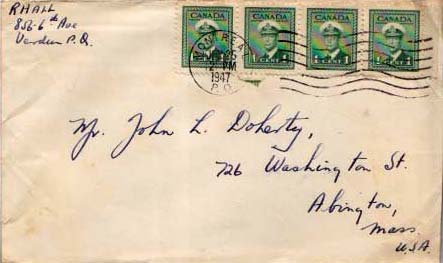 R HALL
856-6th Ave
Verdun P.Q.
CANADA CANADA CANADA CANADA
1 CENT 1 1 CENT 1 1 CENT 1
PM
1947
P.Q.
Mr. John L. Doherty,
726 Washington St.
Abington,
Mass.
U.S.A.